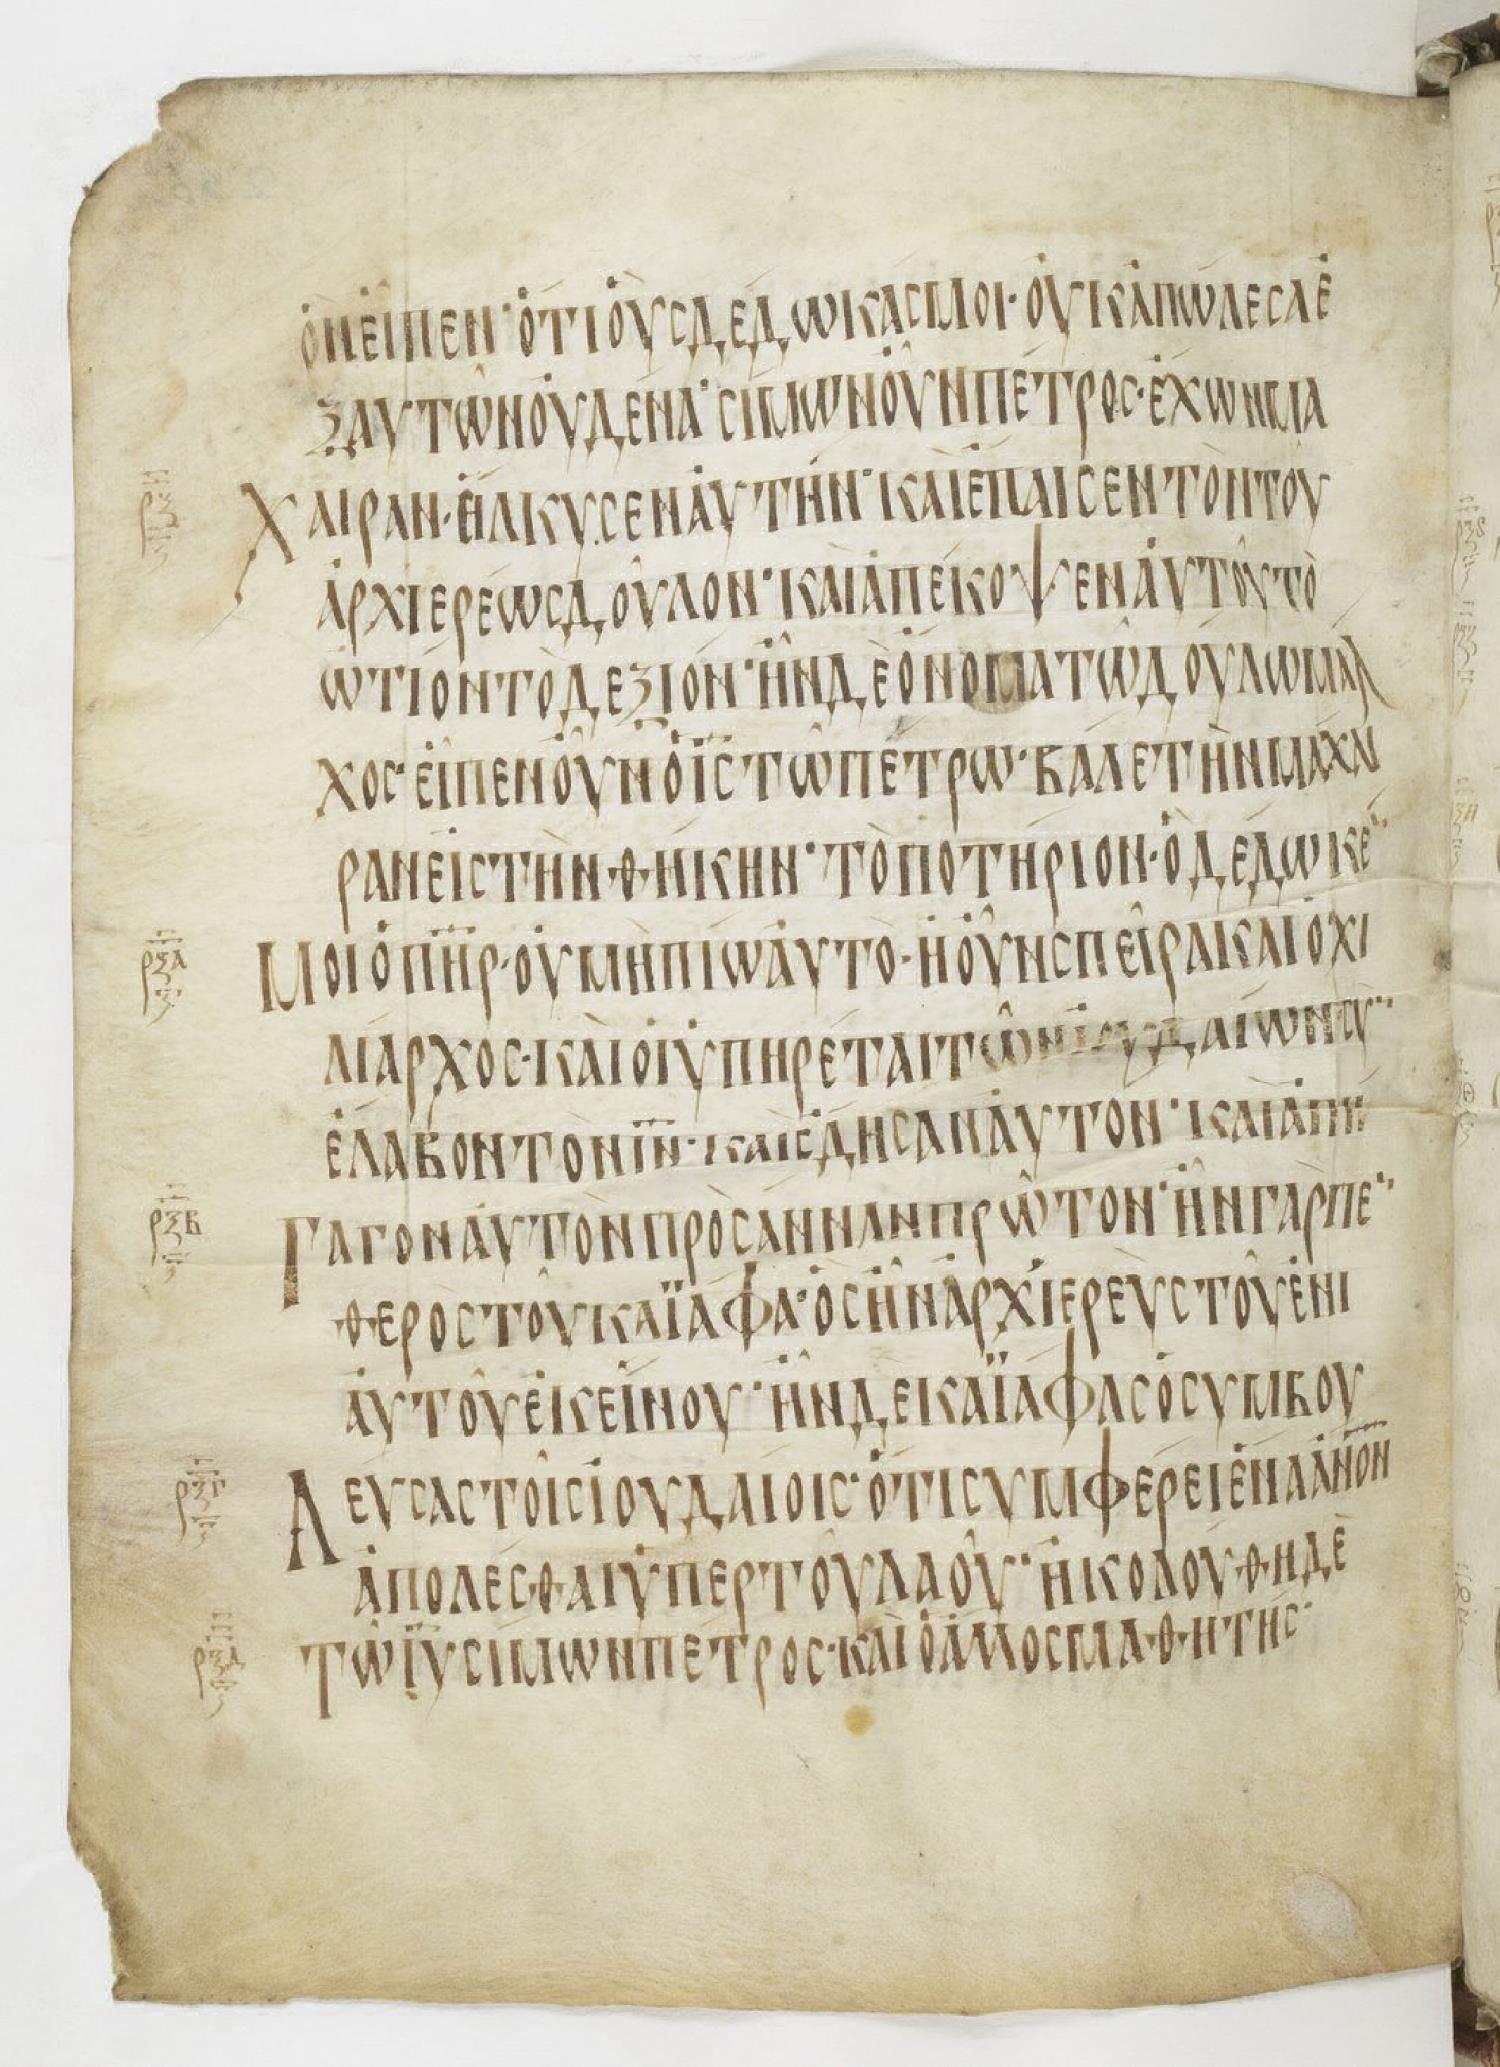 ὁν εἶπεν· ὅτι οὓς δέδωκάς μοι· οὐκ ἀπώλεσα ἐ
ξ αὐτῶν οὐδένα· σίμων οὖν πέτρος· ἔχων μά
χαιραν· εἵλκυσεν αὐτήν· καὶ ἔπαισεν τὸν τοῦ
ἀρχιερέως δοῦλον· καὶ ἀπέκοψεν αὐτοῦ τὸ
ὠτίον τὸ δεξιόν· ἦν δὲ ὄνομα τῶ δούλω μάλ
χος· εἶπεν οὖν ὁ ις τῶ πέτρω· βάλε τὴν μάχαι
ραν εἰς τὴν θήκην· τὸ ποτήριον· ὃ δέδωκέ
μοι ὁ πηρ· οὐ μὴ πίω αὐτό· ἡ οὖν σπεῖρα καὶ ὁ χι
λίαρχος· καὶ οἱ ὑπηρέται τῶν ἰουδαίων συ
ἔλαβον τὸν ιν· καὶ ἔδησαν αὐτόν· καὶ ἀπή
γαγον αὐτὸν πρὸς ἄνναν πρῶτον· ἦν γὰρ πε
θερὸς τοῦ καϊάφα· ὃς ἦν ἀρχιερεὺς τοῦ ἐνι
αυτοῦ ἐκείνου· ἦν δὲ καϊάφας ὁ συμβου
λεύσας τοῖς ἰουδαίοις· ὅτι συμφέρει ἕνα ανον
ἀπολέσθαι ὑπὲρ τοῦ λαοῦ· ἠκολούθη δὲ
τῶ ιυ σίμων πέτρος· καὶ ὁ ἄλλος μαθητής·
ρξα
ρξβ
ρξγ
ρξδ